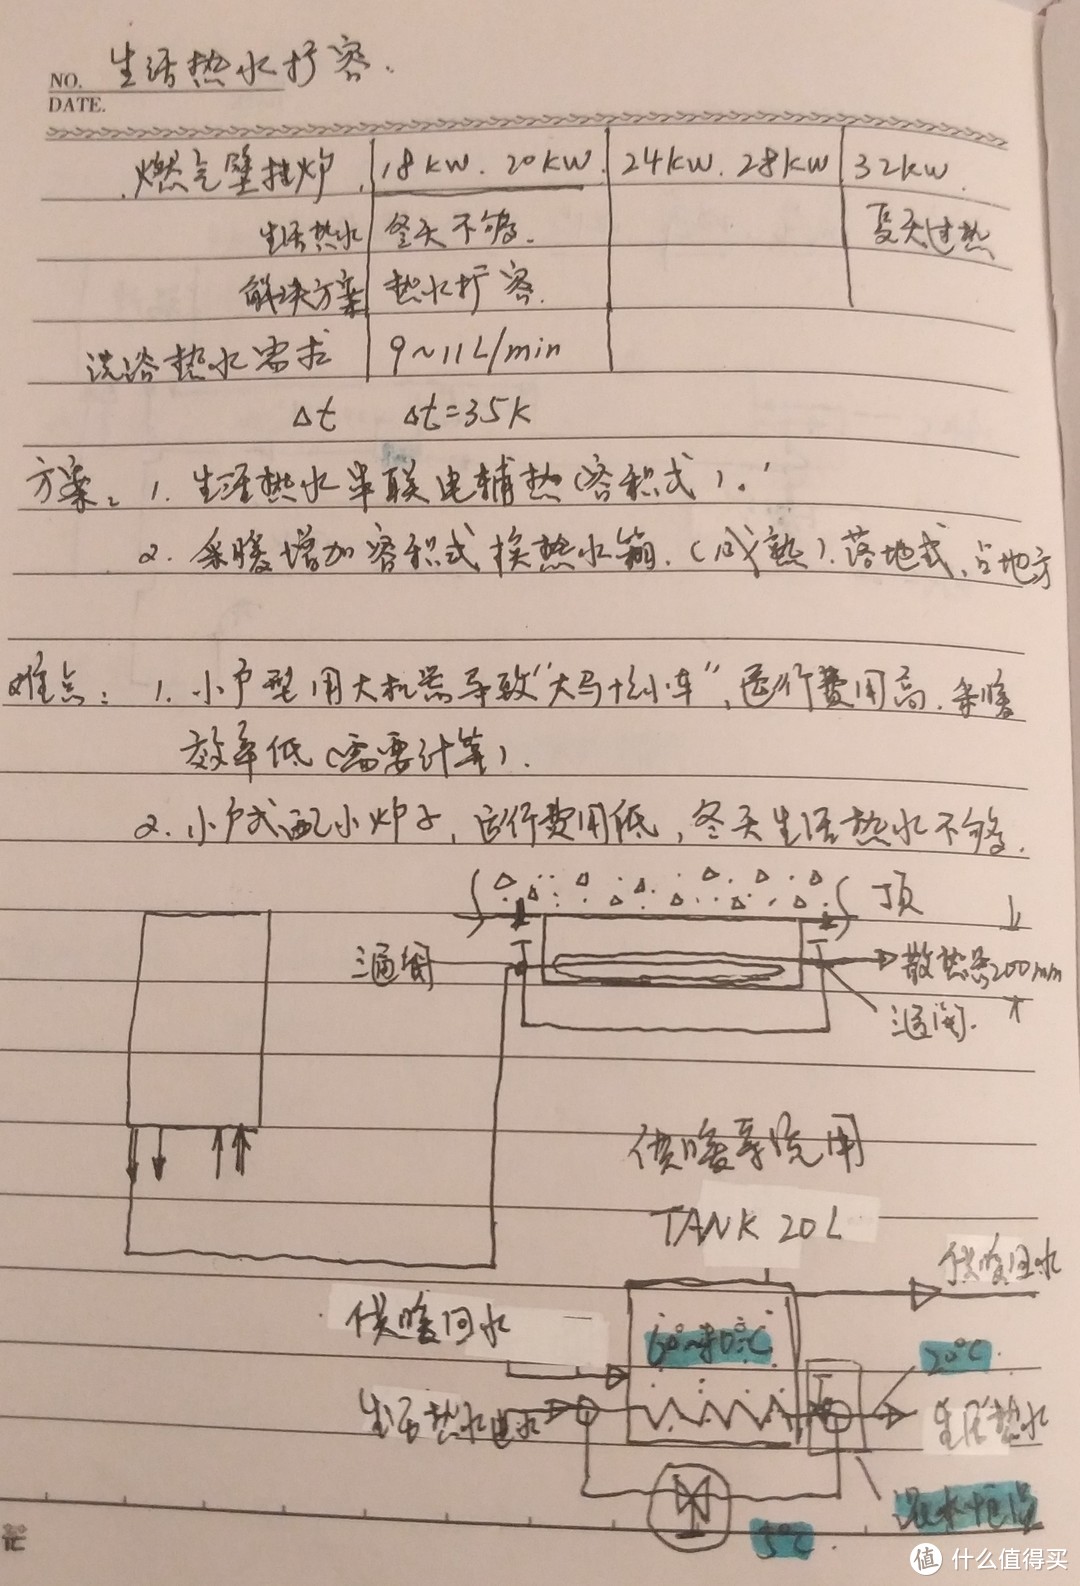 NO. 生活热水扩容.
DATE.
燃气壁挂炉 18kw. 20kw. 24kw. 28kw 32kw.
生活热水 冬天不够. 夏天过热
解决方案 热水扩容.
洗浴热水需求 9~11L/min
Δt Δt=35K
方案: 1. 生活热水串联电辅热(容积式).
2. 采暖增加容积式换热水箱.(成熟).落地式,占地方
难点: 1. 小户型用大机器导致"大马拉小车",运行费用高.采暖
效率低(需要计算).
2. 小户式配小炉子,运行费用低,冬天生活热水不够.
顶
三通阀
散热器200mm
三通阀.
供暖系统用
TANK 20L
供暖回水
供暖回水
20℃
生活热水进水
生活热水
混水恒温
5℃
值 什么值得买